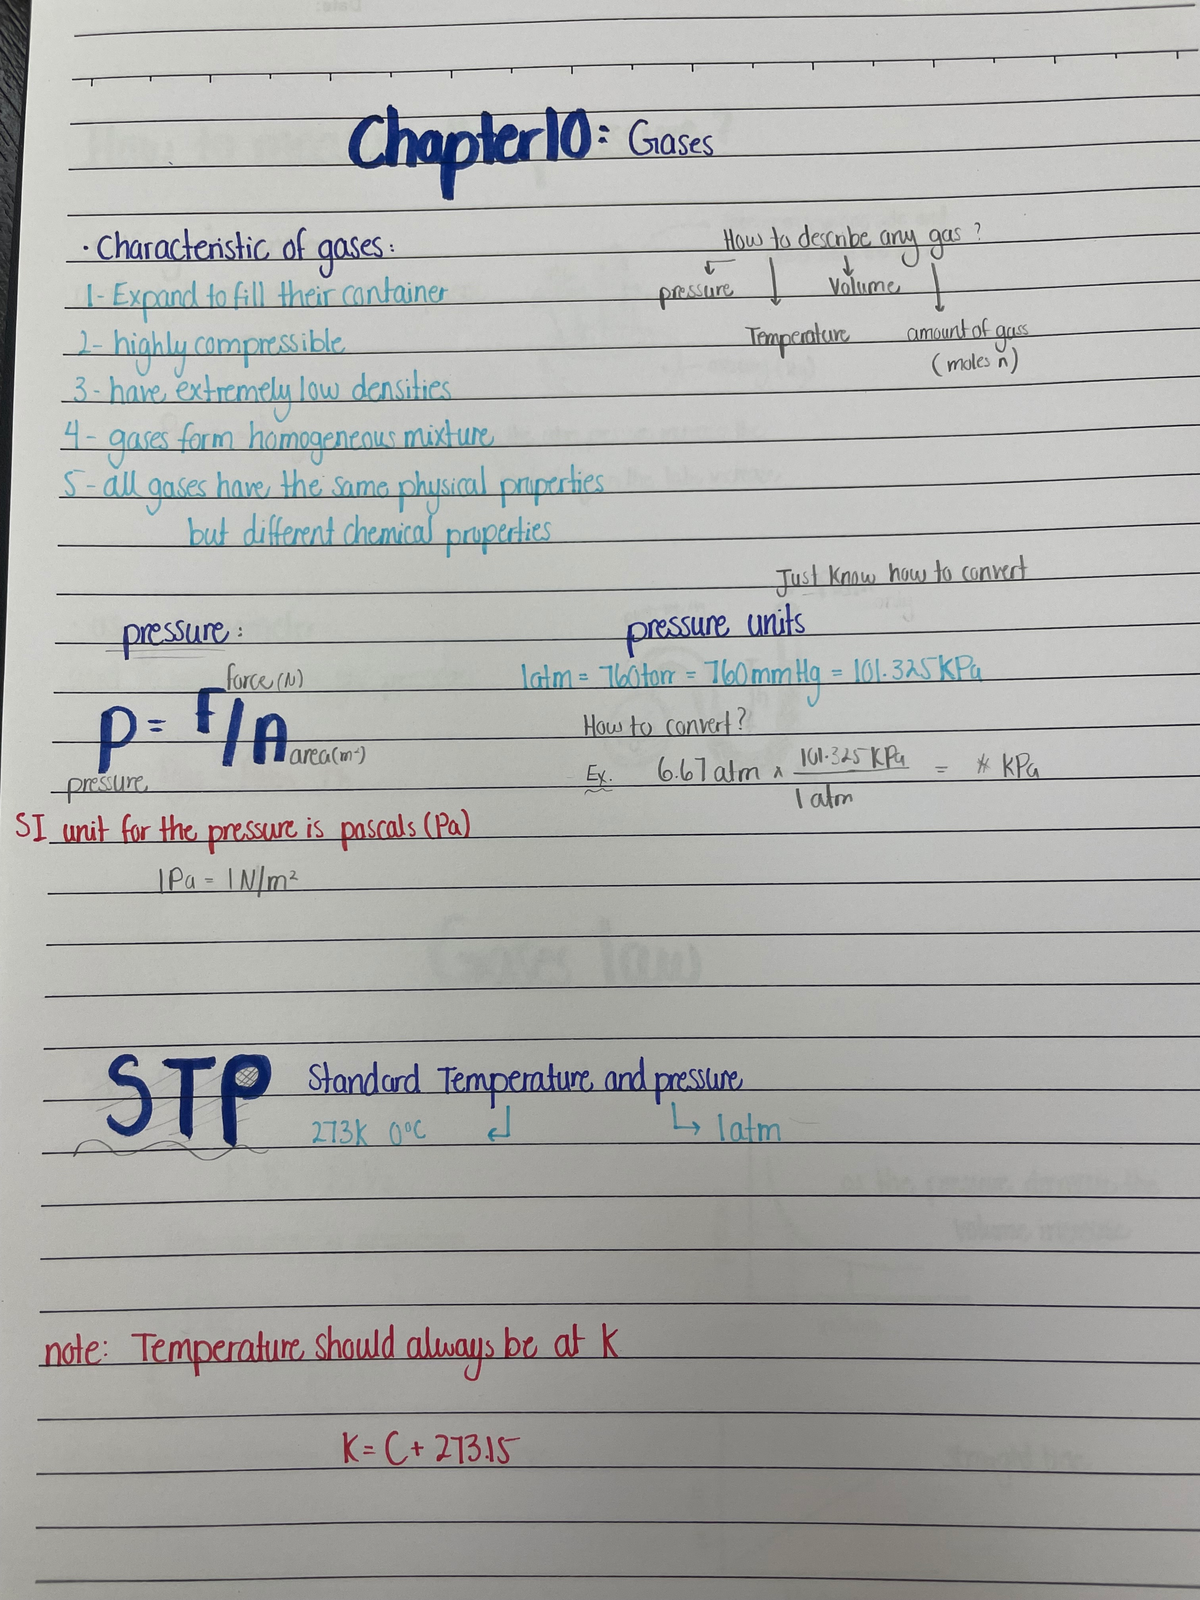 Chapter 10: Gases
· Characteristic of gases:
1- Expand to fill their container
2- highly compressible
3- have extremely low densities
4- gases form homogeneous mixture
5- all gases have the same physical properties
but different chemical properties
How to describe any gas?
pressure
Volume
Temperature
amount of gass
(moles n)
pressure:
force (N)
P = F/A
area (m²)
pressure
SI unit for the pressure is pascals (Pa)
1Pa = 1N/m²
Just know how to convert
pressure units
1atm = 760torr = 760mmHg = 101.325KPa
How to convert?
Ex. 6.67 atm x 101.325 KPa / 1 atm = # KPa
STP Standard Temperature and pressure
273K 0°C ↲ ↳ 1atm
note: Temperature should always be at K
K = C + 273.15